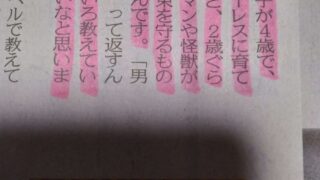 子が4歳で、
ーレスに育て
と、2歳ぐら
マンや怪獣が
束を守るもの
んです。「男
って返すん
いろ教えてい
いなと思いま
ベルで教えて